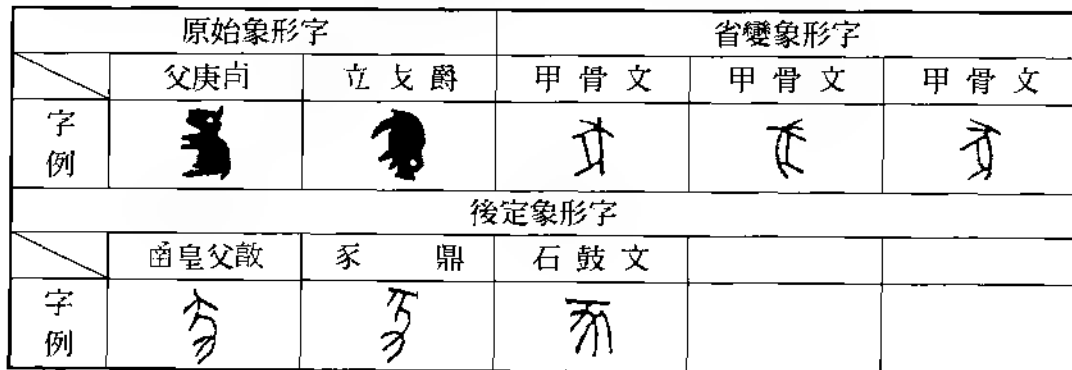 原始象形字 省變象形字
父庚卣 立戈爵 甲骨文 甲骨文 甲骨文
字例
後定象形字
圅皇父敦 豕鼎 石鼓文
字例